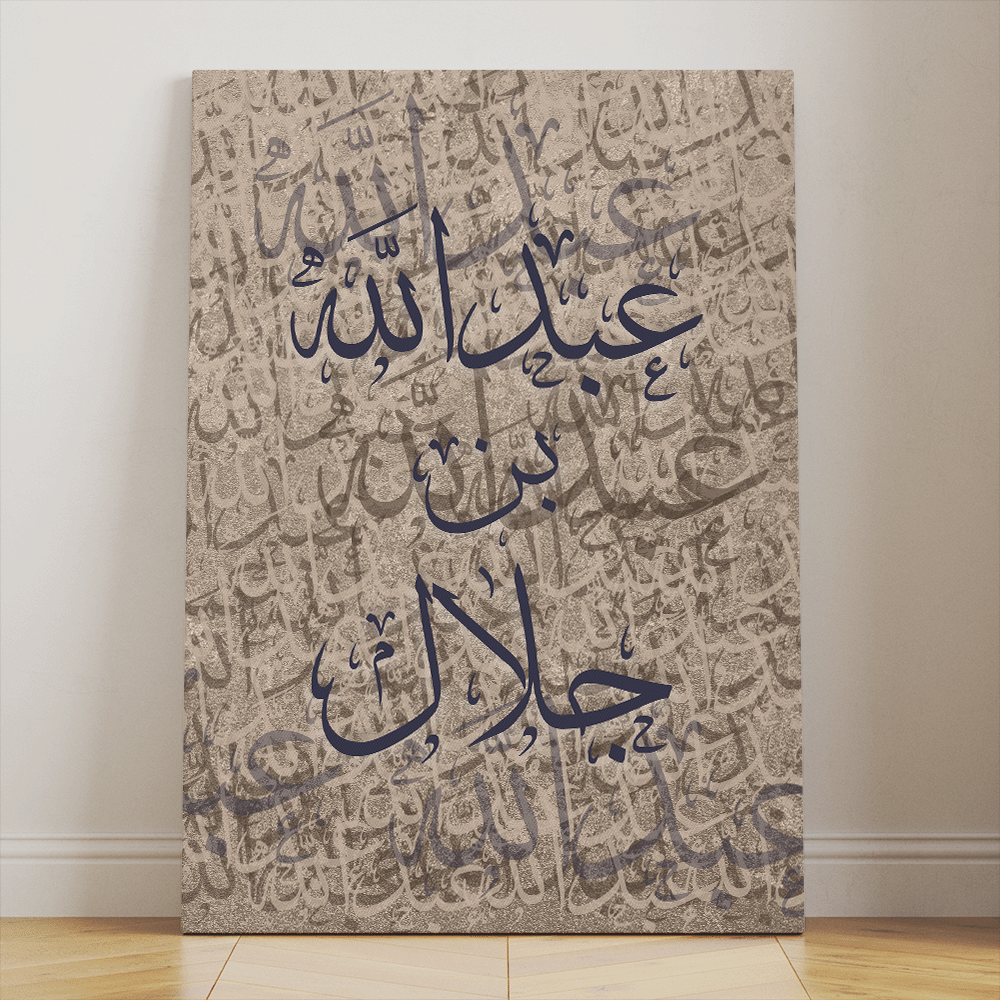 عبد الله
بن
جلال